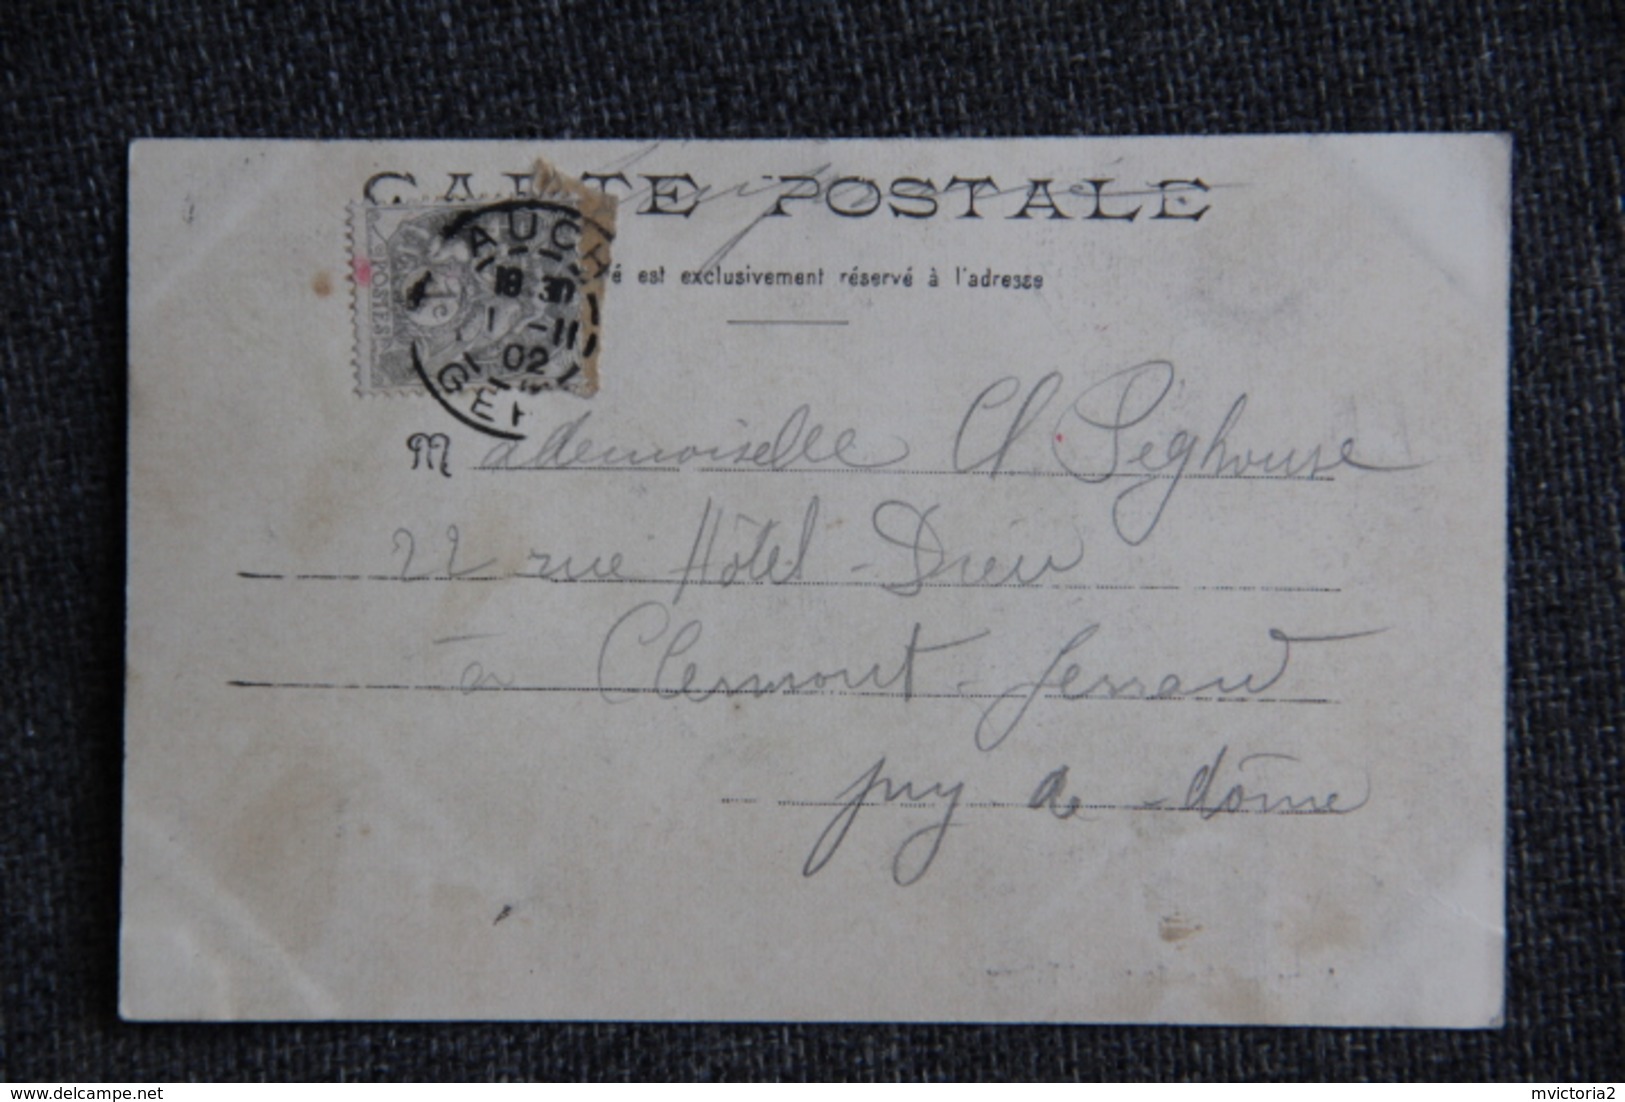 CARTE POSTALE
é est exclusivement réservé à l'adresse
POSTES
1c
AUCH
18 30
1 -11
02
GER
Mademoiselle Cl Péghouse
22 rue Hôtel-Dieu
à Clermont-Ferrand
puy-de-dôme
delcampe.net
mvictoria2